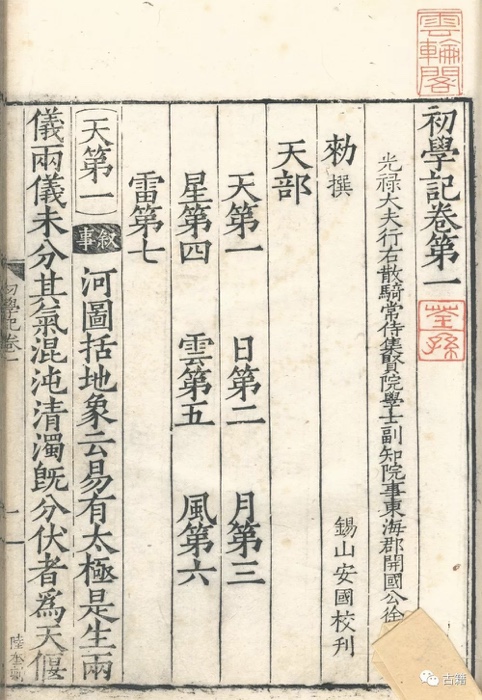 雲輪閣
初學記卷第一
荃孫
光祿大夫行右散騎常侍集賢院學士副知院事東海郡開國公徐
勑撰
錫山安國校刊
天部
天第一 日第二 月第三
星第四 雲第五 風第六
雷第七
天第一 敘事 河圖括地象云易有太極是生兩
儀兩儀未分其氣混沌清濁旣分伏者爲天偃
初學記卷一
一
古籍